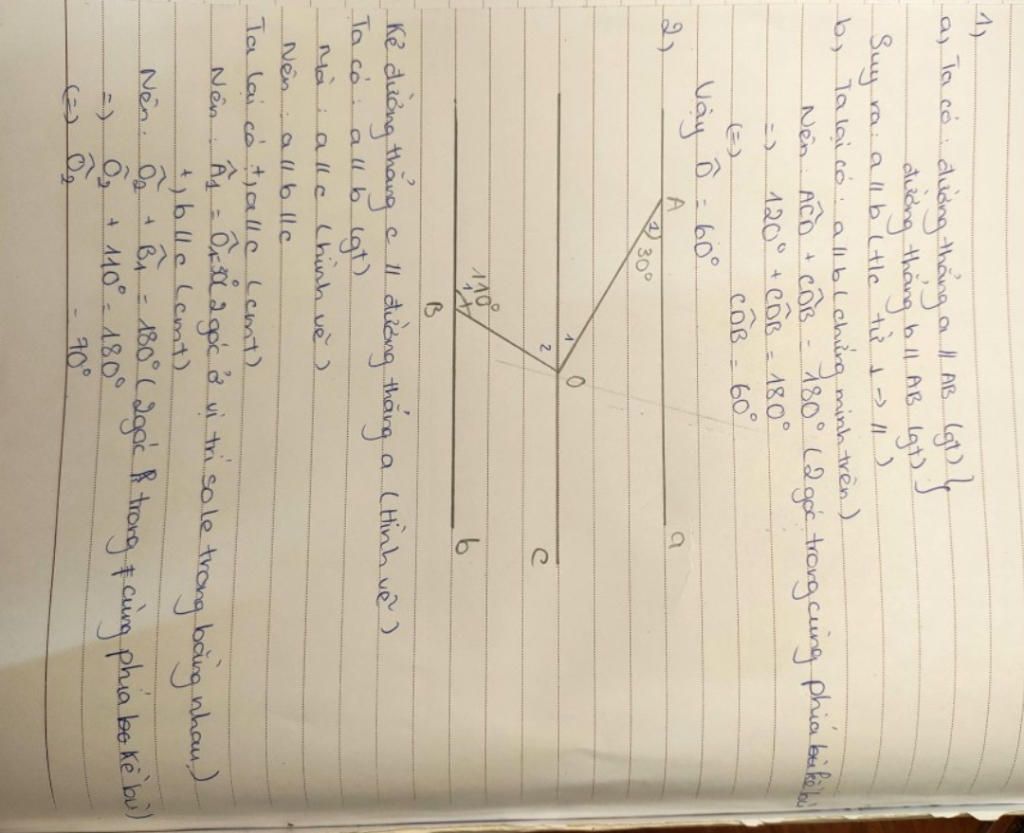 1,
a, Ta có: đường thẳng a // AB (gt) }
đường thẳng b // AB (gt) }
Suy ra: a // b (t/c từ ⊥ -> //)
b, Ta lại có: a // b (chứng minh trên)
Nên: ACD + CDB = 180° (2 góc trong cùng phía kề bù
=> 120° + CDB = 180°
(=) CDB = 60°
Vậy D = 60°
2,
A a
1 30°
1 O c
2
110°
1
B b
Kẻ đường thẳng c // đường thẳng a (Hình vẽ)
Ta có: a // b (gt)
Mà: a // c (hình vẽ)
Nên: a // b // c
Ta lại có +, a // c (cmt)
Nên: A1 = O1 2 góc ở vị trí sole trong bằng nhau)
+, b // c (cmt)
Nên: O2 + B1 = 180° (2 góc trong cùng phía kề bù)
=> O2 + 110° = 180°
(=) O2 = 70°